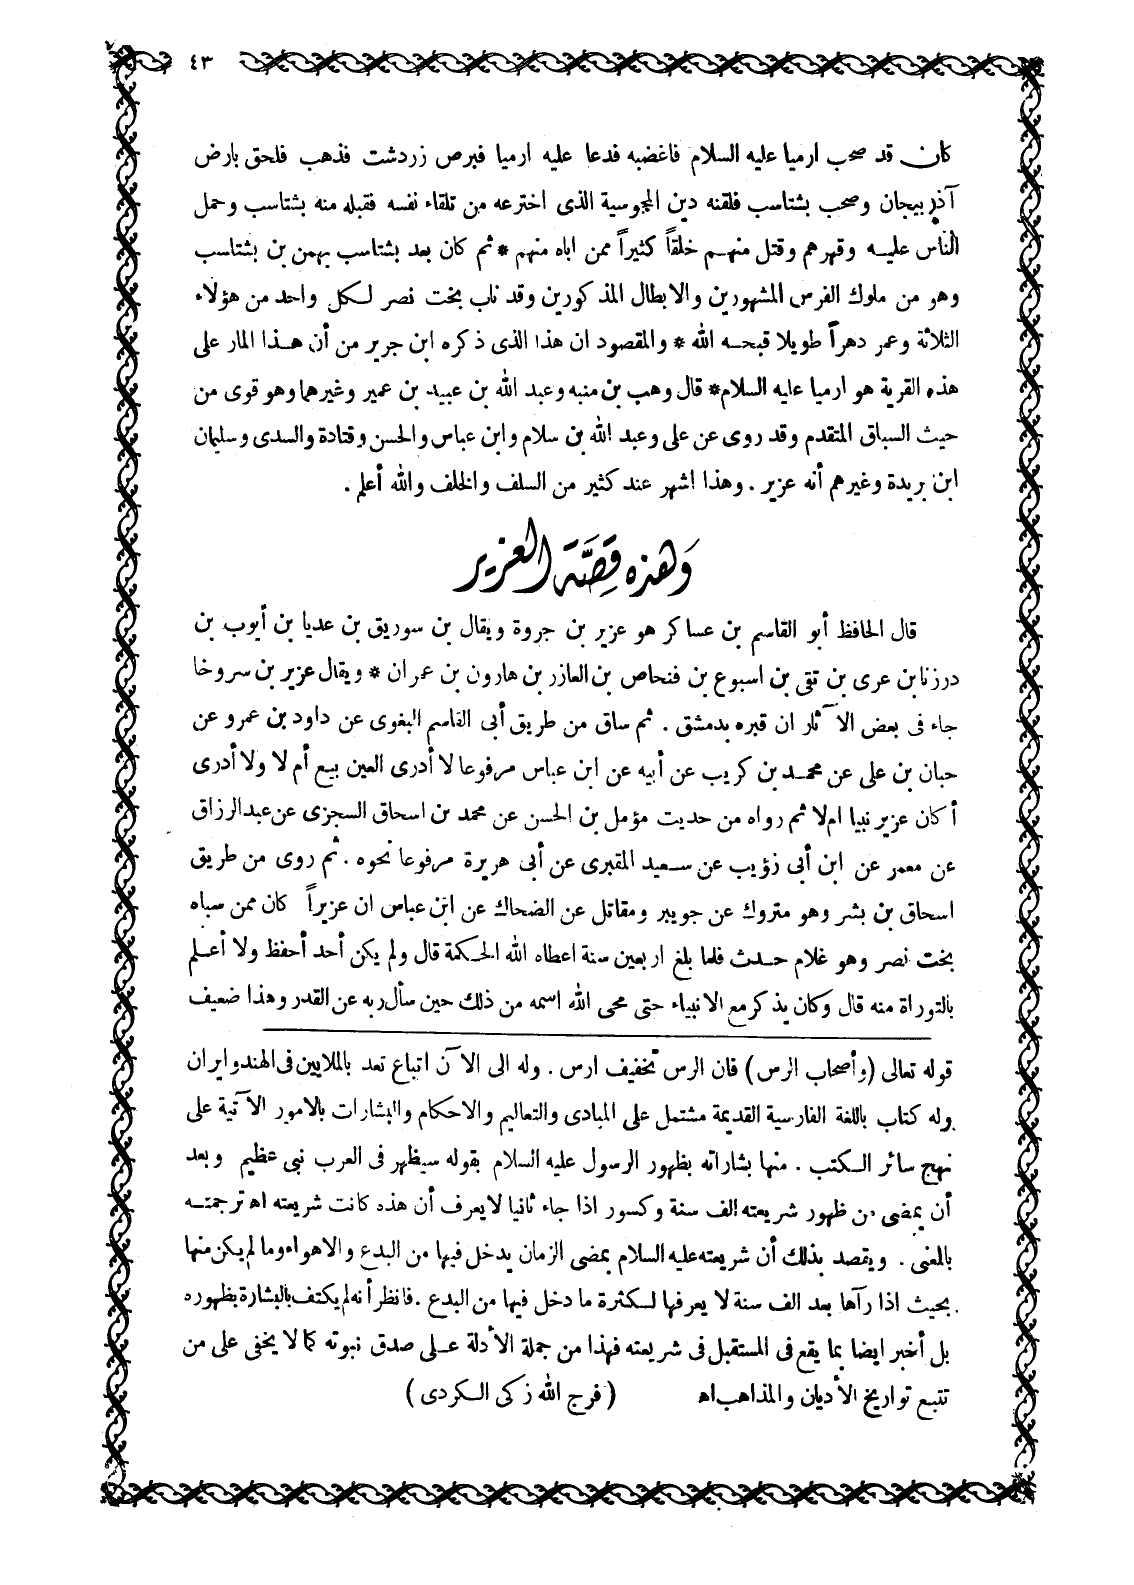 ٤٣
كان قد صحب ارميا عليه السلام فاغضبه فدعا عليه ارميا فبرص زردشت فذهب فلحق بارض
آذربيجان وصحب بشتاسب فلقنه دين المجوسية الذى اخترعه من تلقاء نفسه فقبله منه بشتاسب وحمل
الناس عليه وقهرهم وقتل منهم خلقاً كثيراً ممن اباه منهم * ثم كان بعد بشتاسب بهمن بن بشتاسب
وهو من ملوك الفرس المشهورين والابطال المذكورين وقد ناب بخت نصر لكل واحد من هؤلاء
الثلاثة وعمر دهراً طويلا قبحه الله * والمقصود ان هذا الذى ذكره ابن جرير من أن هذا المار على
هذه القرية هو ارميا عليه السلام * قال وهب بن منبه وعبد الله بن عبيد بن عمير وغيرهما وهو قوى من
حيث السباق المتقدم وقد روى عن على وعبد الله بن سلام وابن عباس والحسن وقتادة والسدى وسليمان
ابن بريدة وغيرهم أنه عزير . وهذا اشهر عند كثير من السلف والخلف والله أعلم .
وَهذه قِصَّة العزير
قال الحافظ أبو القاسم بن عساكر هو عزير بن جروة ويقال بن سوريق بن عديا بن أيوب بن
درزنا بن عرى بن تقى بن اسبوع بن فنحاص بن العازر بن هارون بن عمران * ويقال عزير بن سروخا
جاء فى بعض الآثار ان قبره بدمشق . ثم ساق من طريق أبى القاسم البغوى عن داود بن عمرو عن
حبان بن على عن محمد بن كريب عن أبيه عن ابن عباس مرفوعا لا أدرى العين بيع أم لا ولا أدرى
أكان عزير نبيا ام لا ثم رواه من حديت مؤمل بن الحسن عن محمد بن اسحاق السجزى عن عبد الرزاق
عن معمر عن ابن أبى ذؤيب عن سعيد المقبرى عن أبى هريرة مرفوعا نحوه . ثم روى من طريق
اسحاق بن بشر وهو متروك عن جويبر ومقاتل عن الضحاك عن ابن عباس ان عزيراً كان ممن سباه
بخت نصر وهو غلام حدث فلما بلغ اربعين سنة اعطاه الله الحكمة قال ولم يكن أحد أحفظ ولا أعلم
بالتوراة منه قال وكان يذكر مع الانبياء حتى محى الله اسمه من ذلك حين سأل ربه عن القدر وهذا ضعيف
قوله تعالى (وأصحاب الرس) فان الرس تخفيف ارس . وله الى الآن اتباع تعد بالملايين فى الهند وايران
وله كتاب باللغة الفارسية القديمة مشتمل على المبادى والتعاليم والاحكام والبشارات بالامور الآتية على
نهج سائر الكتب . منها بشاراته بظهور الرسول عليه السلام بقوله سيظهر فى العرب نبى عظيم وبعد
أن يمضى من ظهور شريعته الف سنة وكسور اذا جاء ثانيا لا يعرف أن هذه كانت شريعته اه ترجمته
بالمعنى . ويقصد بذلك أن شريعته عليه السلام بمضى الزمان يدخل فيها من البدع والاهواء وما لم يكن منها
بحيث اذا رآها بعد الف سنة لا يعرفها لكثرة ما دخل فيها من البدع . فانظر أنه لم يكتف بالبشارة بظهوره
بل أخبر ايضا بما يقع فى المستقبل فى شريعته فهذا من جملة الأدلة على صدق نبوته كما لا يخفى على من
تتبع تواريخ الأديان والمذاهب اه (فرج الله زكى الكردى)